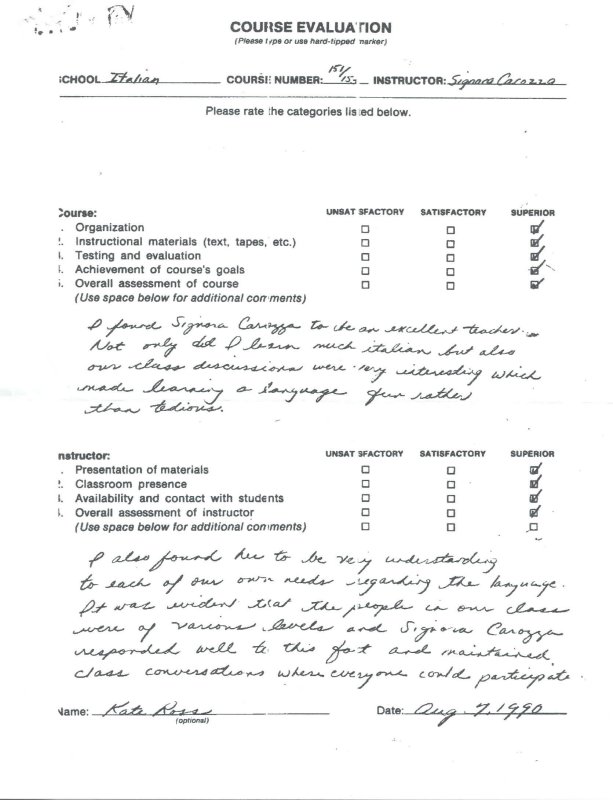 COURSE EVALUATION
(Please type or use hard-tipped marker)
SCHOOL Italian COURSE NUMBER: 151/153 INSTRUCTOR: Signora Carozza
Please rate the categories listed below.
Course: UNSATISFACTORY SATISFACTORY SUPERIOR
. Organization
2. Instructional materials (text, tapes, etc.)
3. Testing and evaluation
4. Achievement of course's goals
5. Overall assessment of course
(Use space below for additional comments)
I found Signora Carozza to be an excellent teacher.
Not only did I learn much italian but also
our class discussions were very interesting which
made learning a language fun rather
than tedious.
Instructor: UNSATISFACTORY SATISFACTORY SUPERIOR
. Presentation of materials
2. Classroom presence
3. Availability and contact with students
4. Overall assessment of instructor
(Use space below for additional comments)
I also found her to be very understanding
to each of our own needs regarding the language.
It was evident that the people in our class
were of various levels and Signora Carozza
responded well to this fact and maintained
class conversations where everyone could participate.
Name: Kate Ross Date: Aug. 7, 1990
(optional)